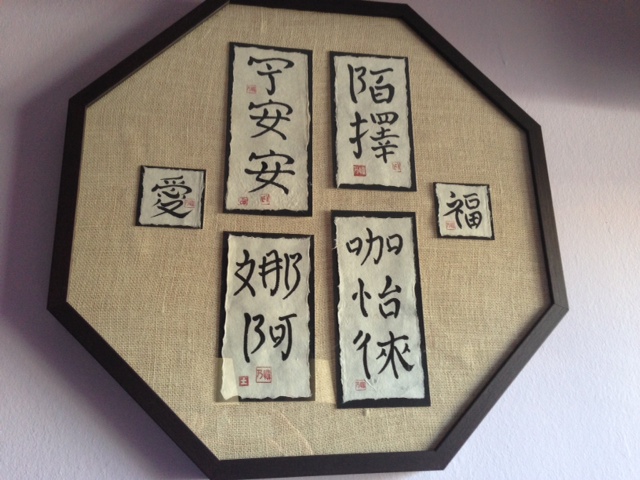 安安
陌擇
愛
福
娜阿
咖怡徠